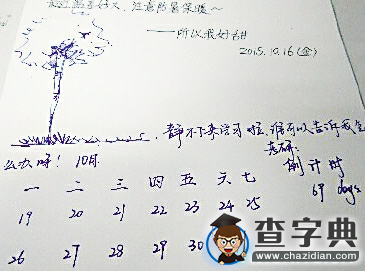 注意防暑保暖～
——所以我好甜
2015.10.16(金)
静不下来学习啦,谁可以告诉我怎
么办呀! 10月
考研:
倒计时
69 days
一 二 三 四 五 六 七
19 20 21 22 23 24 25
26 27 28 29 30
查字典
www.chazidian.com